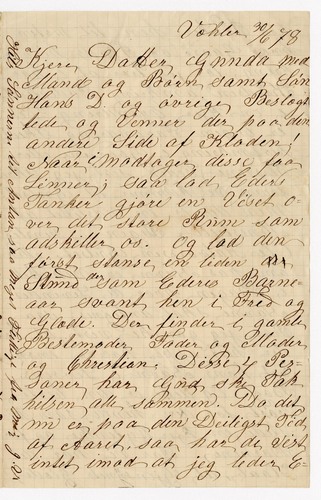 Vøhler 30/6 78
Kjere Datter Gunda med
Mand og Børn samt Søn
Hans D. og øvrege Beslegt
tede og Venner der paa den
andre Side af Kloden;
Naar I Modtager disse faa
Linner; saa lad Eders
Tanker gjøre en Viset o-
ver det store Rum som
adskiller os. Og lad den
først stanse en liden
Stund der som Eders Barne-
aar svant hen i Fred og
Glæde. Der finder I gamle
Bestemoder Fader og Moder
og Christian. Disse 4 Per-
soner har Gud ske Tak
hilsen alle sammen. Da det
nu er paa den Deiligst Tid
af Aaret, saa har de vist
intet imod at jeg leder E-